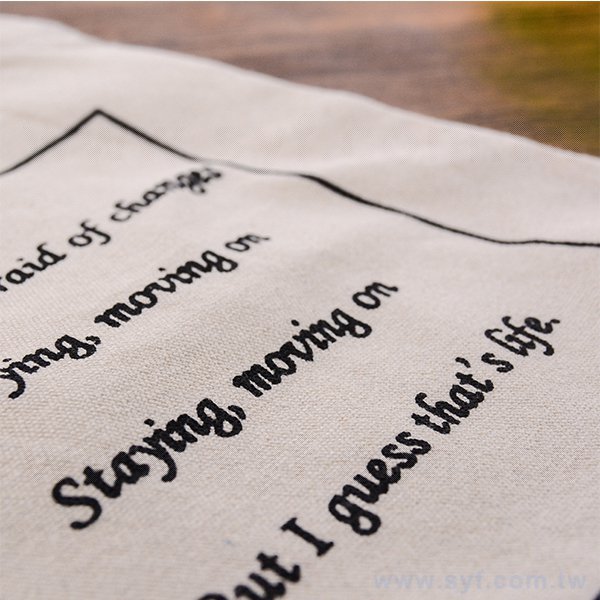 raid of changes
ying, moving on
Staying, moving on
But I guess that's life.
www.syf.com.tw